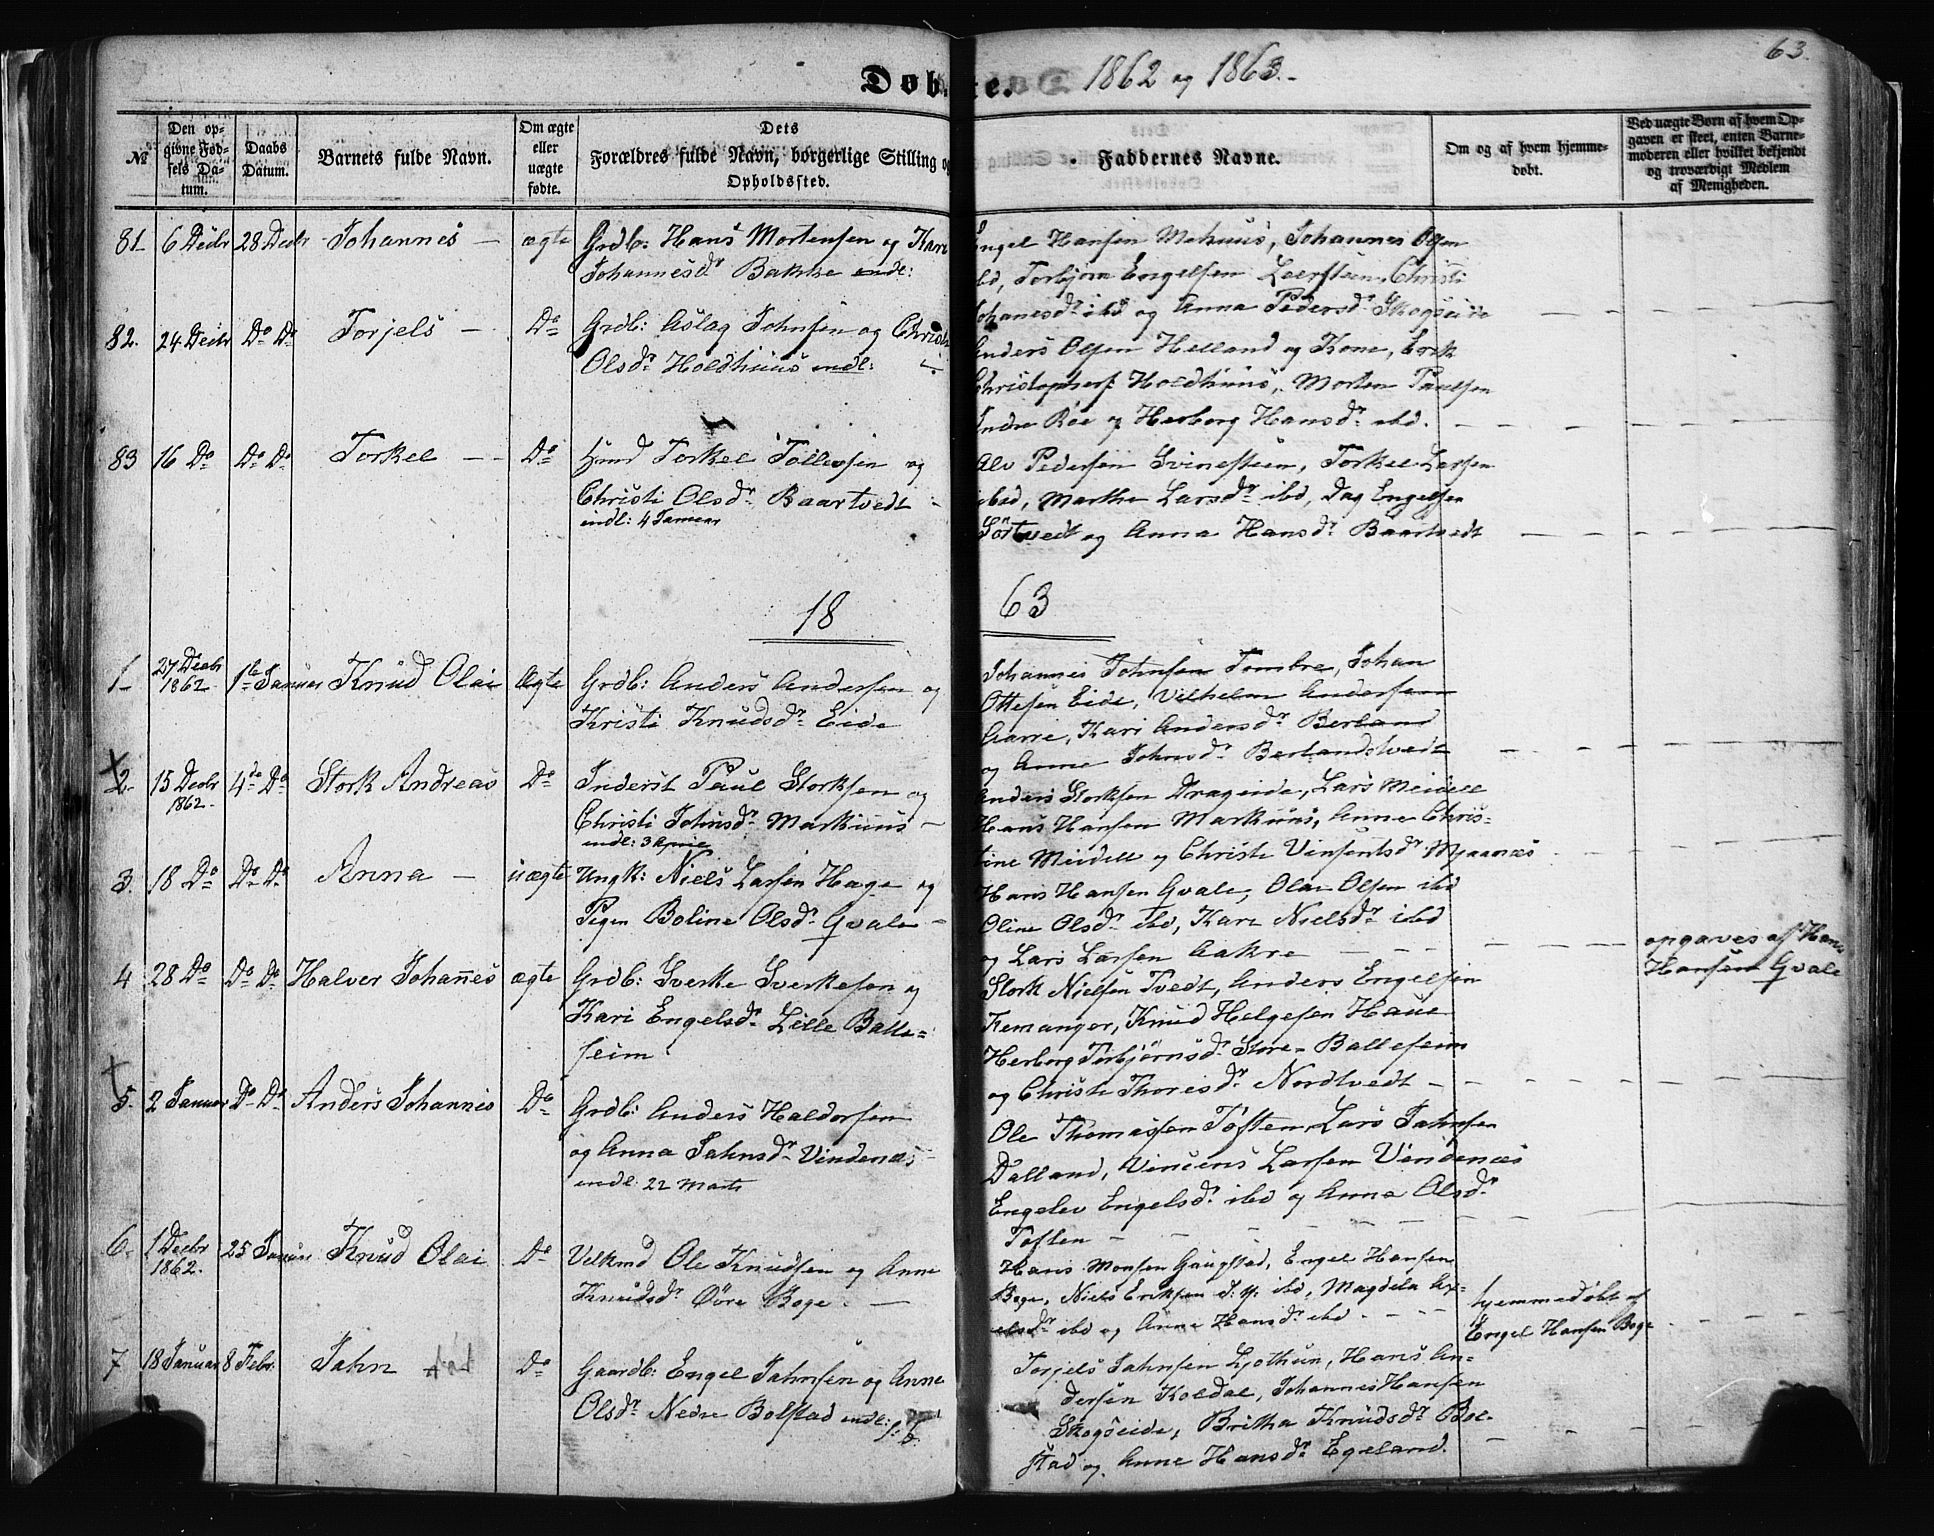 63.
Døbte. 1862 og 1863.
No
Den opgivne Fødsels Datum.
Daabs Datum.
Barnets fulde Navn.
Om ægte eller uægte fødte.
Dets Forældres fulde Navn, borgerlige Stilling og Opholdssted.
Faddernes Navne.
Om og af hvem hjemmedøbt.
Ved uægte Børn af hvem Opgaven er skeet, enten Barnemoderen eller hvilket bekjendt og troværdigt Medlem af Menigheden.
81 6 Decbr 28 Decbr Johannes – ægte Grdb: Hans Mortensen og Kari
Johannesdr Bakke indl:
Engel Hansen Mehuus, Johannes Olsen
ibd, Torbjørn Engelsen Leersteen, Christi
Johanesdr ibd og Anna Pedersdr Skogseide
82. 24 Decbr Do Do Torjels – Do Grdb: Aslag Johnsen og Christi
Olsdr Holdhuus indl:
Anders Olsen Helland og Kone, Erik
Christophers Holdhuus, Morten Paulsen
Indre Røe og Herborg Hansdr ibd.
83 16 Do Do Do Torkel – Do Hmd Torkel Tollevsen og
Christi Olsdr Baartvedt
indl: 4 Januar
Alv Pedersen Svinesteen, Torkel Larsen
ibid, Marthe Larsdr ibd, Dag Engelsen
Sørtvedt og Anna Hansdr Baartvedt
18 63
1. 27 Decbr 1862 1te Januar Knud Olai Ægte Grdb: Anders Andersen og
Kristi Knudsdr Eide
Johannes Johnsen Tombre, Johan
Ottesen Eide, Vilhelm Andersen
Aarre, Kari Andersdr Berland
og Anna Johnsdr Berlandstvedt
2. 15 Decbr 1862. 4de Do Stork Andreas Do Inderst Paul Storksen og
Christi Johnsdr Markuus –
indl: 3 April
Anders Storksen Drageide, Lars Meidell
Hans Hansen Markuus, Anne Chris-
tine Meidell og Christi Vinsentsdr Mjaanæs
3. 18 Do Do Do Anna – uægte Ungk: Niels Larsen Hage og
Pigen Boline Olsdr Gvale –
Hans Hansen Gvale, Olai Olsen ibd
Oline Olsdr ibd, Kari Nielsdr ibd
og Lars Larsen Aakre
opgaves af Hans
Hansen Gvale
4 28 Do Do Do Halver Johannes ægte Grdb: Sverke Sverkesen og
Kari Engelsdr Lille Balle-
seim
Stork Nielsen Tvedt, Anders Engelsen
Remanger, Knud Helgesen Haue
Herborg Torbjørnsdr Store-Balleseim
og Christi Thoresdr Nordtvedt –
5. 2 Januar Do Do Anders Johannes Do Grdb: Anders Haldorsen
og Anna Jahnsdr Vindenæs
indl. 22 Marts
Ole Thomassen Toften, Lars Jahnsen
Dalland, Vincens Larsen Vindenæs
Engelev Engelsdr ibd og Anna Olsdr
Toften – –
6. 1 Decbr 1862. 25 Januar Knud Olai Do Velkmd Ole Knudsen og Anne
Knudsdr Øvre Boge –
Hans Monsen Gaugstad, Engel Hansen
Boge, Niels Eriksen ibd, Magdela Ax-
elsdr ibd og Anne Hansdr ibd
hjemmedøbt af
Engel Hansen Boge
7 18 Januar 8 Febr. Jahn Do Gaardb: Engel Jahnsen og Anne
Olsdr Nedre Bolstad indl:
Torjels Jahnsen Ljothun, Hans An-
dersen Koldal, Johannes Hansen
Skogseide, Britha Knudsdr Bol-
stad og Anne Hansdr Egeland.